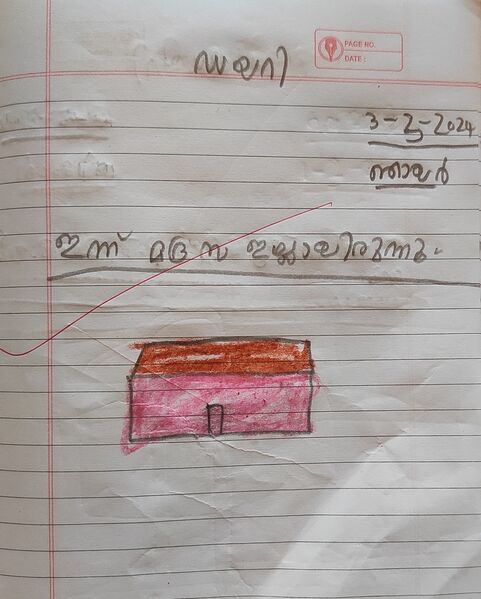 ഡയറി
PAGE NO.
DATE :
3-3-2024
ഞായർ
ഇന്ന് മദ്രസ ഇല്ലായിരുന്നു.